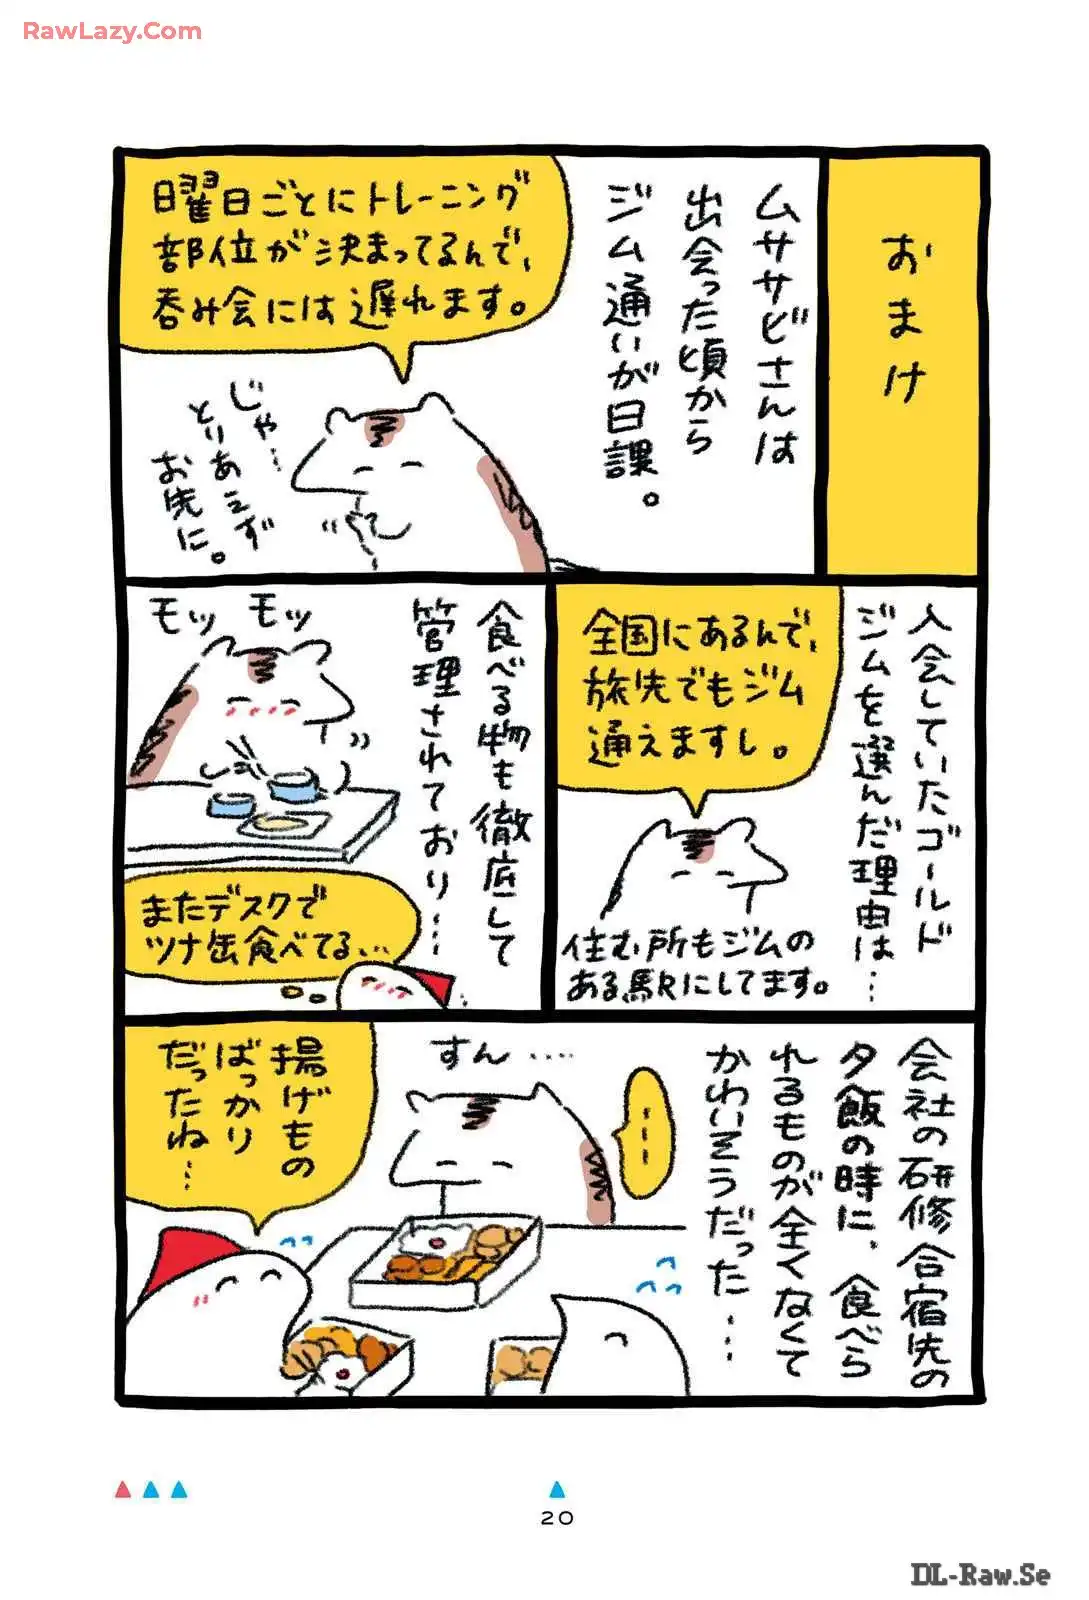 RawLazy.Com
おまけ
ムササビさんは
出会った頃から
ジム通いが日課。
曜日ごとにトレーニング
部位が決まってるんで、
呑み会には遅れます。
じゃ…
とりあえず
お先に。
入会していたゴールド
ジムを選んだ理由は…
全国にあるんで、
旅先でもジム
通えますし。
住む所もジムの
ある駅にしてます。
食べる物も徹底して
管理されており…
モッ モッ
またデスクで
ツナ缶食べてる…
会社の研修合宿先の
夕飯の時に、食べら
れるものが全くなくて
かわいそうだった…
すん……
揚げもの
ばっかり
だったね…
20
DL-Raw.Se